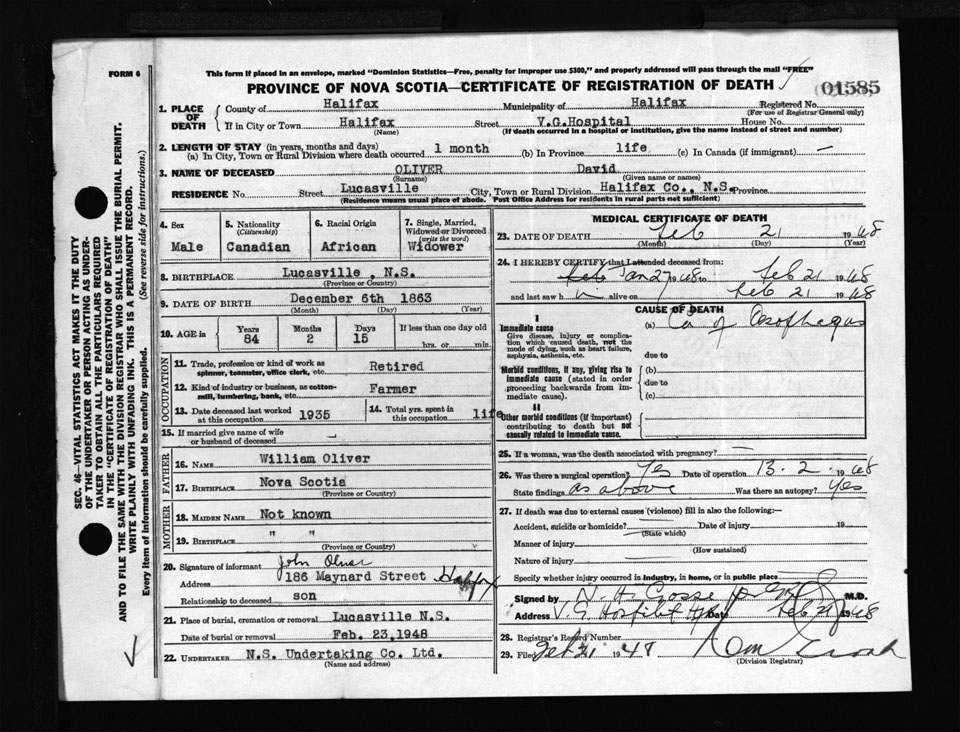 FORM 6
This form if placed in an envelope, marked "Dominion Statistics—Free, penalty for improper use $300," and properly addressed will pass through the mail "FREE"
PROVINCE OF NOVA SCOTIA—CERTIFICATE OF REGISTRATION OF DEATH
01585
SEC. 46—VITAL STATISTICS ACT MAKES IT THE DUTY
OF THE UNDERTAKER OR PERSON ACTING AS UNDER-
TAKER TO OBTAIN ALL THE PARTICULARS REQUIRED
IN THE "CERTIFICATE OF REGISTRATION OF DEATH"
AND TO FILE THE SAME WITH THE DIVISION REGISTRAR WHO SHALL ISSUE THE BURIAL PERMIT.
WRITE PLAINLY WITH UNFADING INK. THIS IS A PERMANENT RECORD.
Every item of information should be carefully supplied. (See reverse side for instructions.)
1. PLACE OF DEATH
County of Halifax Municipality of Halifax Registered No.
(For use of Registrar General only)
If in City or Town Halifax Street V.G.Hospital House No.
(Name) (If death occurred in a hospital or institution, give the name instead of street and number)
2. LENGTH OF STAY (in years, months and days)
(a) In City, Town or Rural Division where death occurred 1 month (b) In Province life (c) In Canada (if immigrant) —
3. NAME OF DECEASED OLIVER David
(Surname) (Given name or names)
RESIDENCE No. Street Lucasville City, Town or Rural Division Halifax Co., N.S. Province
(Residence means usual place of abode. Post Office Address for residents in rural parts not sufficient)
4. Sex Male
5. Nationality (Citizenship) Canadian
6. Racial Origin African
7. Single, Married, Widowed or Divorced (write the word) Widower
8. BIRTHPLACE Lucasville, N.S.
(Province or Country)
9. DATE OF BIRTH December 6th 1863
(Month) (Day) (Year)
10. AGE in Years 84 Months 2 Days 15 If less than one day old hrs. or min.
OCCUPATION
11. Trade, profession or kind of work as spinner, teamster, office clerk, etc. Retired
12. Kind of industry or business, as cotton-mill, lumbering, bank, etc. Farmer
13. Date deceased last worked at this occupation 1935
14. Total yrs. spent in this occupation life
15. If married give name of wife or husband of deceased —
FATHER
16. NAME William Oliver
17. BIRTHPLACE Nova Scotia
(Province or Country)
MOTHER
18. MAIDEN NAME Not known
19. BIRTHPLACE " "
(Province or Country)
20. Signature of informant John Oliver
Address 186 Maynard Street Halifax
Relationship to deceased son
21. Place of burial, cremation or removal Lucasville N.S.
Date of burial or removal Feb. 23,1948
22. UNDERTAKER N.S. Undertaking Co. Ltd.
(Name and address)
MEDICAL CERTIFICATE OF DEATH
23. DATE OF DEATH Feb 21 1948
(Month) (Day) (Year)
24. I HEREBY CERTIFY that I attended deceased from:
Feb Jan 27 1948 to Feb 21 1948
and last saw h alive on Feb 21 1948
CAUSE OF DEATH
I
Immediate cause
Give disease, injury or complication which caused death, not the mode of dying, such as heart failure, asphyxia, asthenia, etc.
(a) Ca of Oesophagus
due to
Morbid conditions, if any, giving rise to immediate cause (stated in order proceeding backwards from immediate cause).
(b)
due to
(c)
II
Other morbid conditions (if important) contributing to death but not causally related to immediate cause.
25. If a woman, was the death associated with pregnancy? —
26. Was there a surgical operation? Yes Date of operation 13. 2. 1948
State findings as above Was there an autopsy? Yes
27. If death was due to external causes (violence) fill in also the following:—
Accident, suicide or homicide? Date of injury 19
(State which)
Manner of injury
(How sustained)
Nature of injury
Specify whether injury occurred in industry, in home, or in public place
Signed by N. H. Gosse M.D.
Address V.G. Hospital Date Feb 21 1948
28. Registrar's Record Number
29. Filed Feb 21 1947
(Division Registrar)